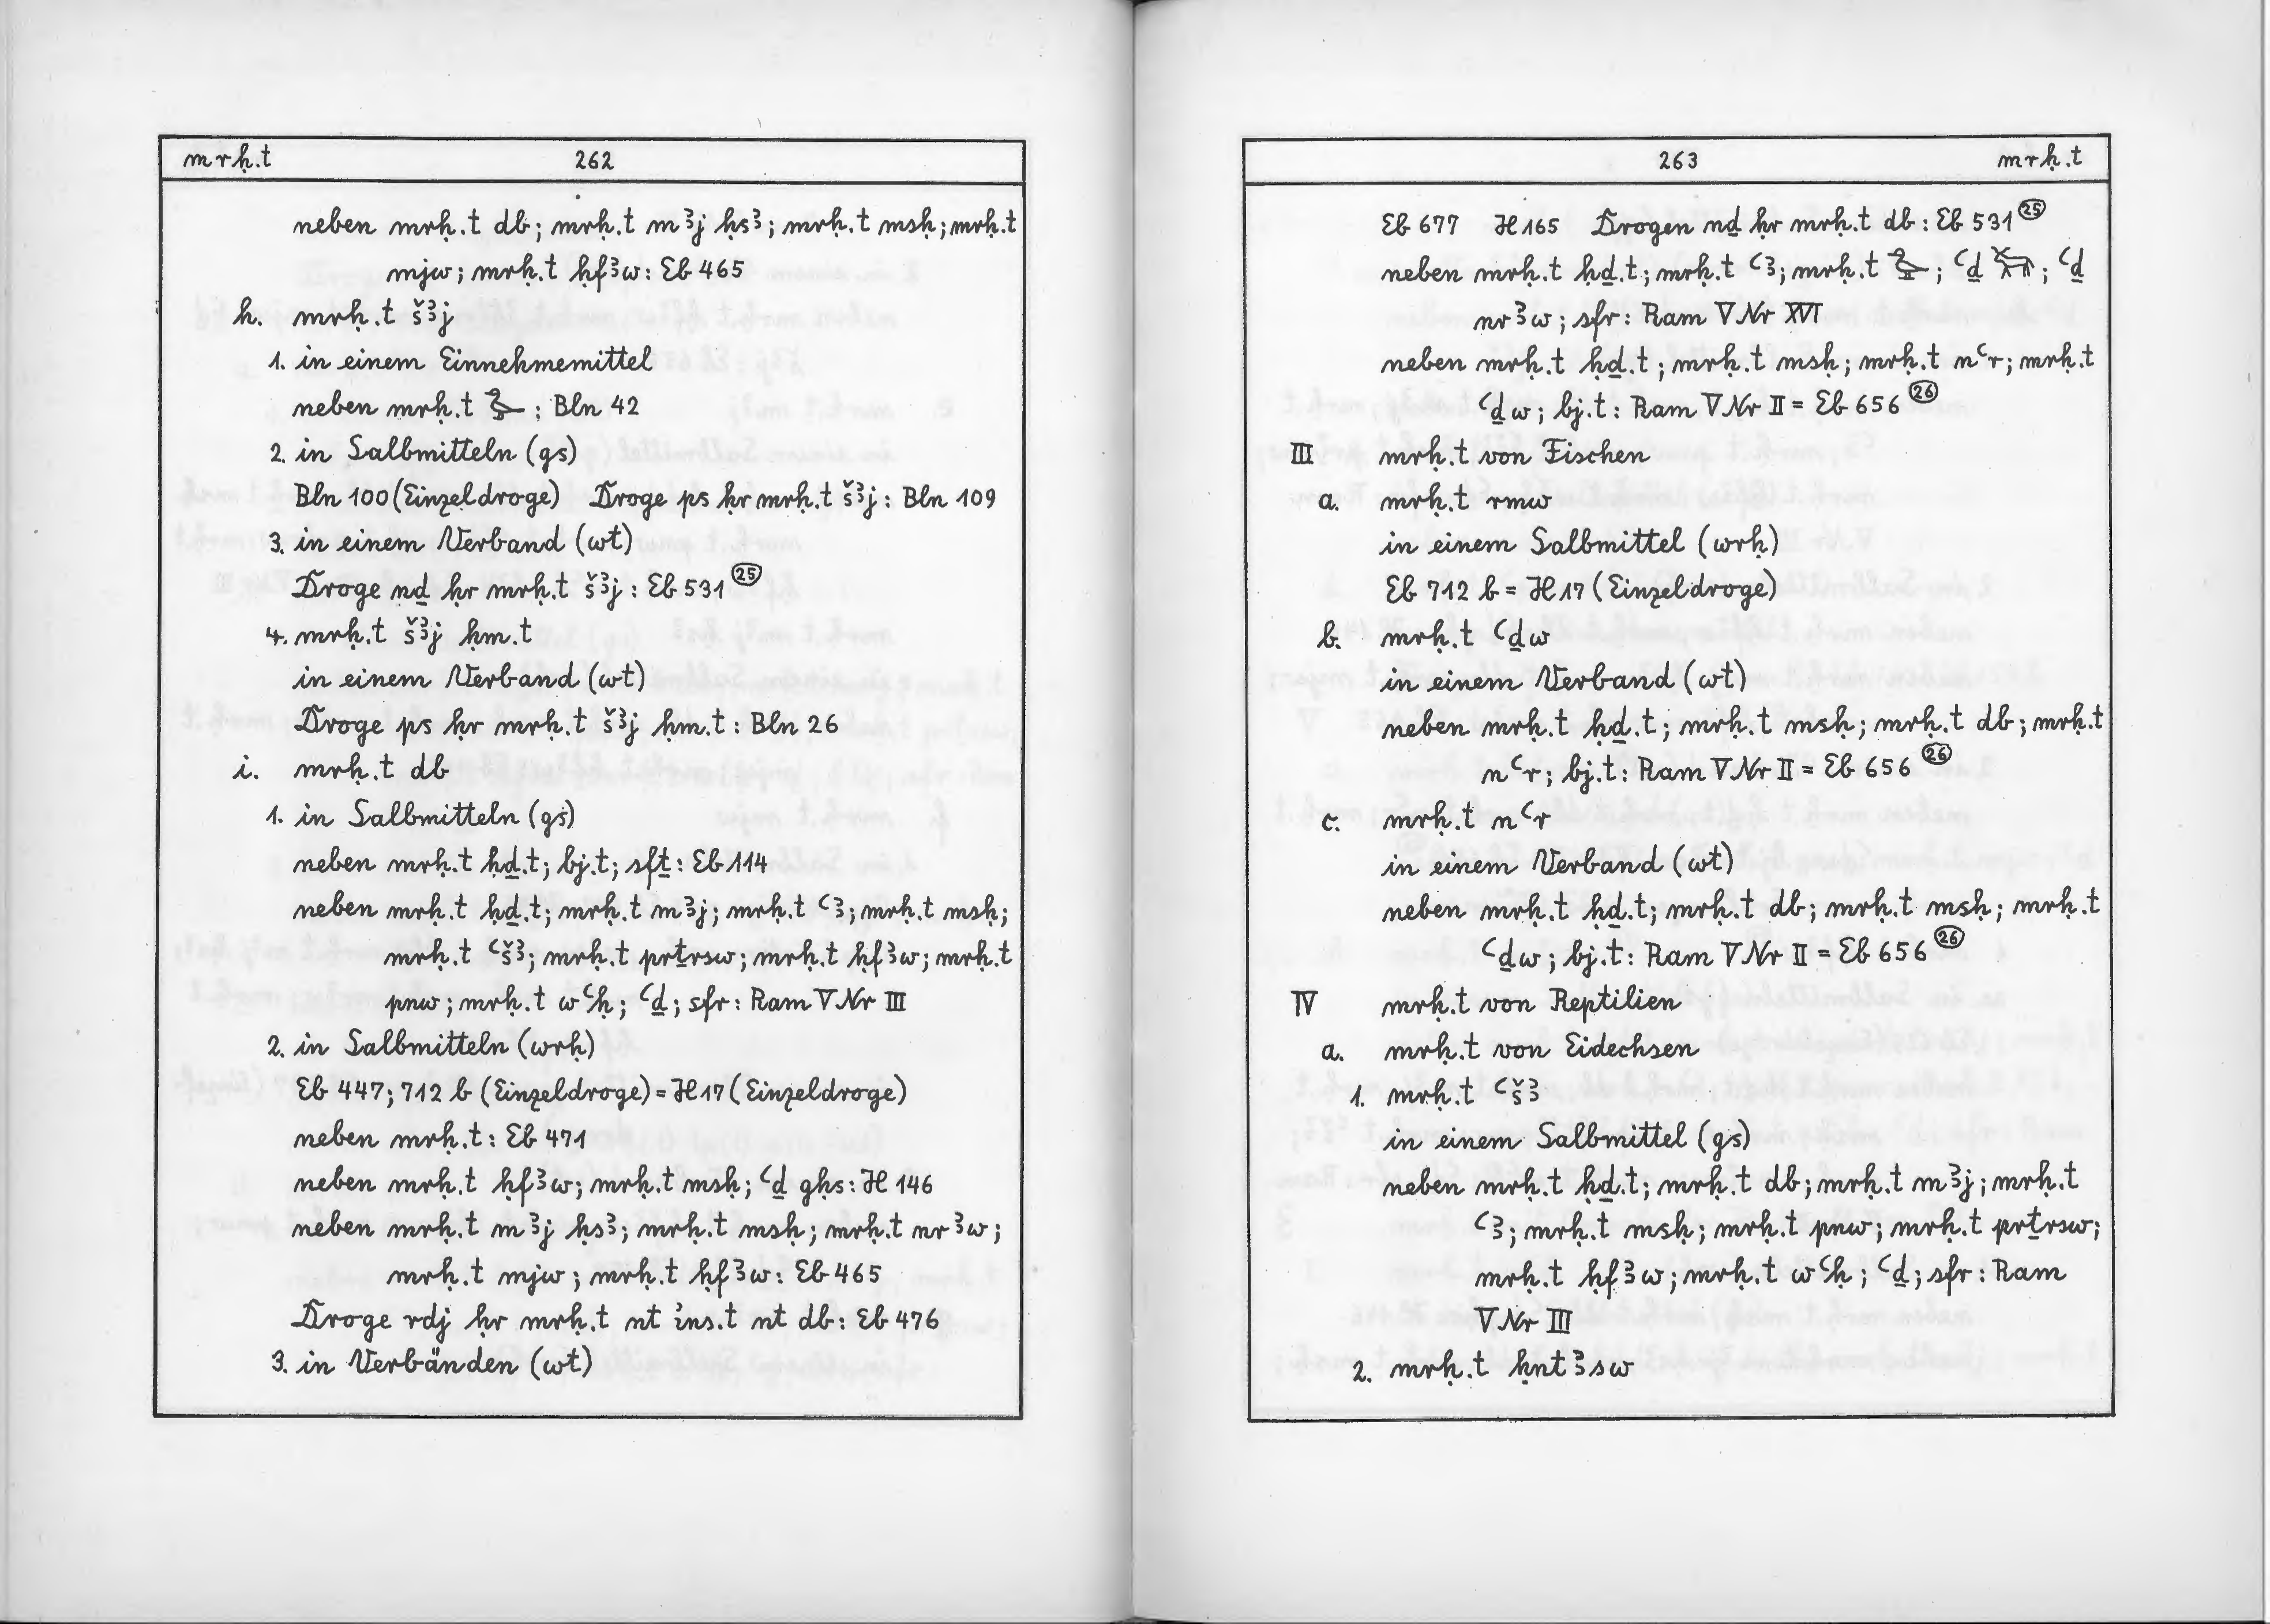 mrḥ.t 262
neben mrḥ.t db; mrḥ.t mꜣj ḥsꜣ; mrḥ.t msḥ; mrḥ.t
mjw; mrḥ.t ḥfꜣw: Eb 465
h. mrḥ.t šꜣj
1. in einem Einnehmemittel
neben mrḥ.t 𓅭 : Bln 42
2. in Salbmitteln (gs)
Bln 100 (Einzeldroge) Droge ps ḥr mrḥ.t šꜣj: Bln 109
3. in einem Verband (wt)
Droge nḏ ḥr mrḥ.t šꜣj: Eb 531 ㉕
4. mrḥ.t šꜣj ḥm.t
in einem Verband (wt)
Droge ps ḥr mrḥ.t šꜣj ḥm.t: Bln 26
i. mrḥ.t db
1. in Salbmitteln (gs)
neben mrḥ.t ḥḏ.t; bj.t; sfṯ: Eb 114
neben mrḥ.t ḥḏ.t; mrḥ.t mꜣj; mrḥ.t ꜥꜣ; mrḥ.t msḥ;
mrḥ.t ꜥšꜣ; mrḥ.t prṯrsw; mrḥ.t ḥfꜣw; mrḥ.t
pnw; mrḥ.t wꜥḥ; ꜥḏ; sfr: Ram V Nr III
2. in Salbmitteln (wrḥ)
Eb 447; 712 b (Einzeldroge) = H 17 (Einzeldroge)
neben mrḥ.t: Eb 471
neben mrḥ.t ḥfꜣw; mrḥ.t msḥ; ꜥḏ gḥs: H 146
neben mrḥ.t mꜣj ḥsꜣ; mrḥ.t msḥ; mrḥ.t nrꜣw;
mrḥ.t mjw; mrḥ.t ḥfꜣw: Eb 465
Droge rdj ḥr mrḥ.t nt ins.t nt db: Eb 476
3. in Verbänden (wt)
263 mrḥ.t
Eb 677 H 165 Drogen nḏ ḥr mrḥ.t db: Eb 531 ㉕
neben mrḥ.t ḥḏ.t; mrḥ.t ꜥꜣ; mrḥ.t 𓅭; ꜥḏ; ꜥḏ
nrꜣw; sfr: Ram V Nr XVI
neben mrḥ.t ḥḏ.t; mrḥ.t msḥ; mrḥ.t nꜥr; mrḥ.t
ꜥḏw; bj.t: Ram V Nr II = Eb 656 ㉖
III mrḥ.t von Fischen
a. mrḥ.t rmw
in einem Salbmittel (wrḥ)
Eb 712 b = H 17 (Einzeldroge)
b. mrḥ.t ꜥḏw
in einem Verband (wt)
neben mrḥ.t ḥḏ.t; mrḥ.t msḥ; mrḥ.t db; mrḥ.t
nꜥr; bj.t: Ram V Nr II = Eb 656 ㉖
c. mrḥ.t nꜥr
in einem Verband (wt)
neben mrḥ.t ḥḏ.t; mrḥ.t db; mrḥ.t msḥ; mrḥ.t
ꜥḏw; bj.t: Ram V Nr II = Eb 656 ㉖
IV mrḥ.t von Reptilien
a. mrḥ.t von Eidechsen
1. mrḥ.t ꜥšꜣ
in einem Salbmittel (gs)
neben mrḥ.t ḥḏ.t; mrḥ.t db; mrḥ.t mꜣj; mrḥ.t
ꜥꜣ; mrḥ.t msḥ; mrḥ.t pnw; mrḥ.t prṯrsw;
mrḥ.t ḥfꜣw; mrḥ.t wꜥḥ; ꜥḏ; sfr: Ram
V Nr III
2. mrḥ.t ḥntꜣsw